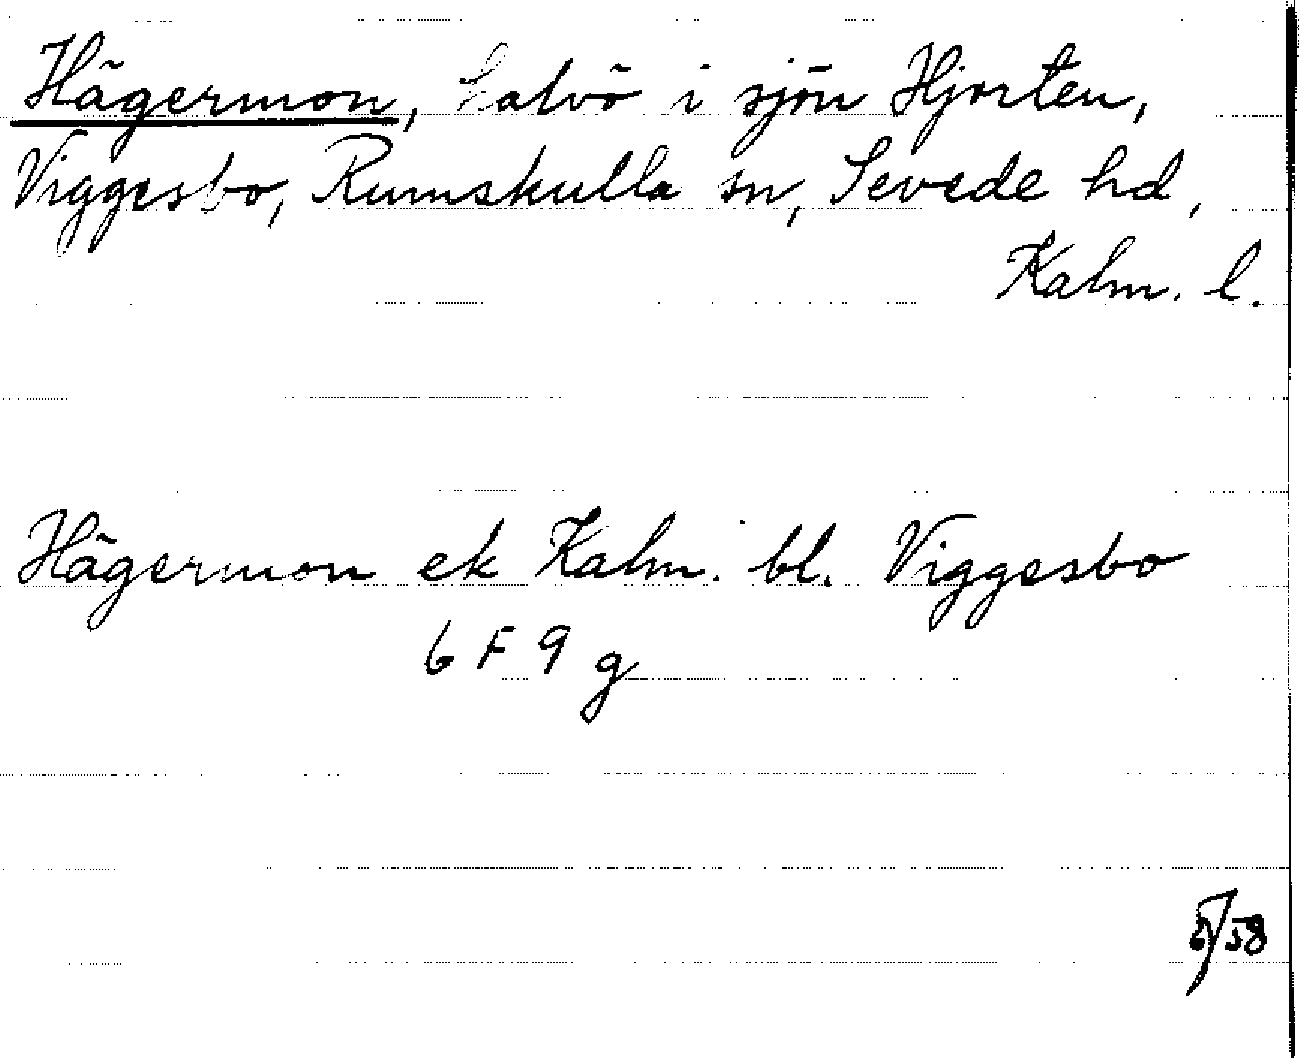 Hägermon, halvö i sjön Hjorten,
Viggesbo, Rumskulla sn, Sevede hd,
Kalm. l.
Hägermon ek Kalm. bl. Viggesbo
6 F 9 g
/58